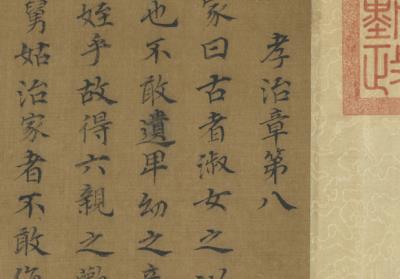 孝治章第八
家曰古者淑女之以
也不敢遺卑幼之
姪乎故得六親之
舅姑治家者不敢